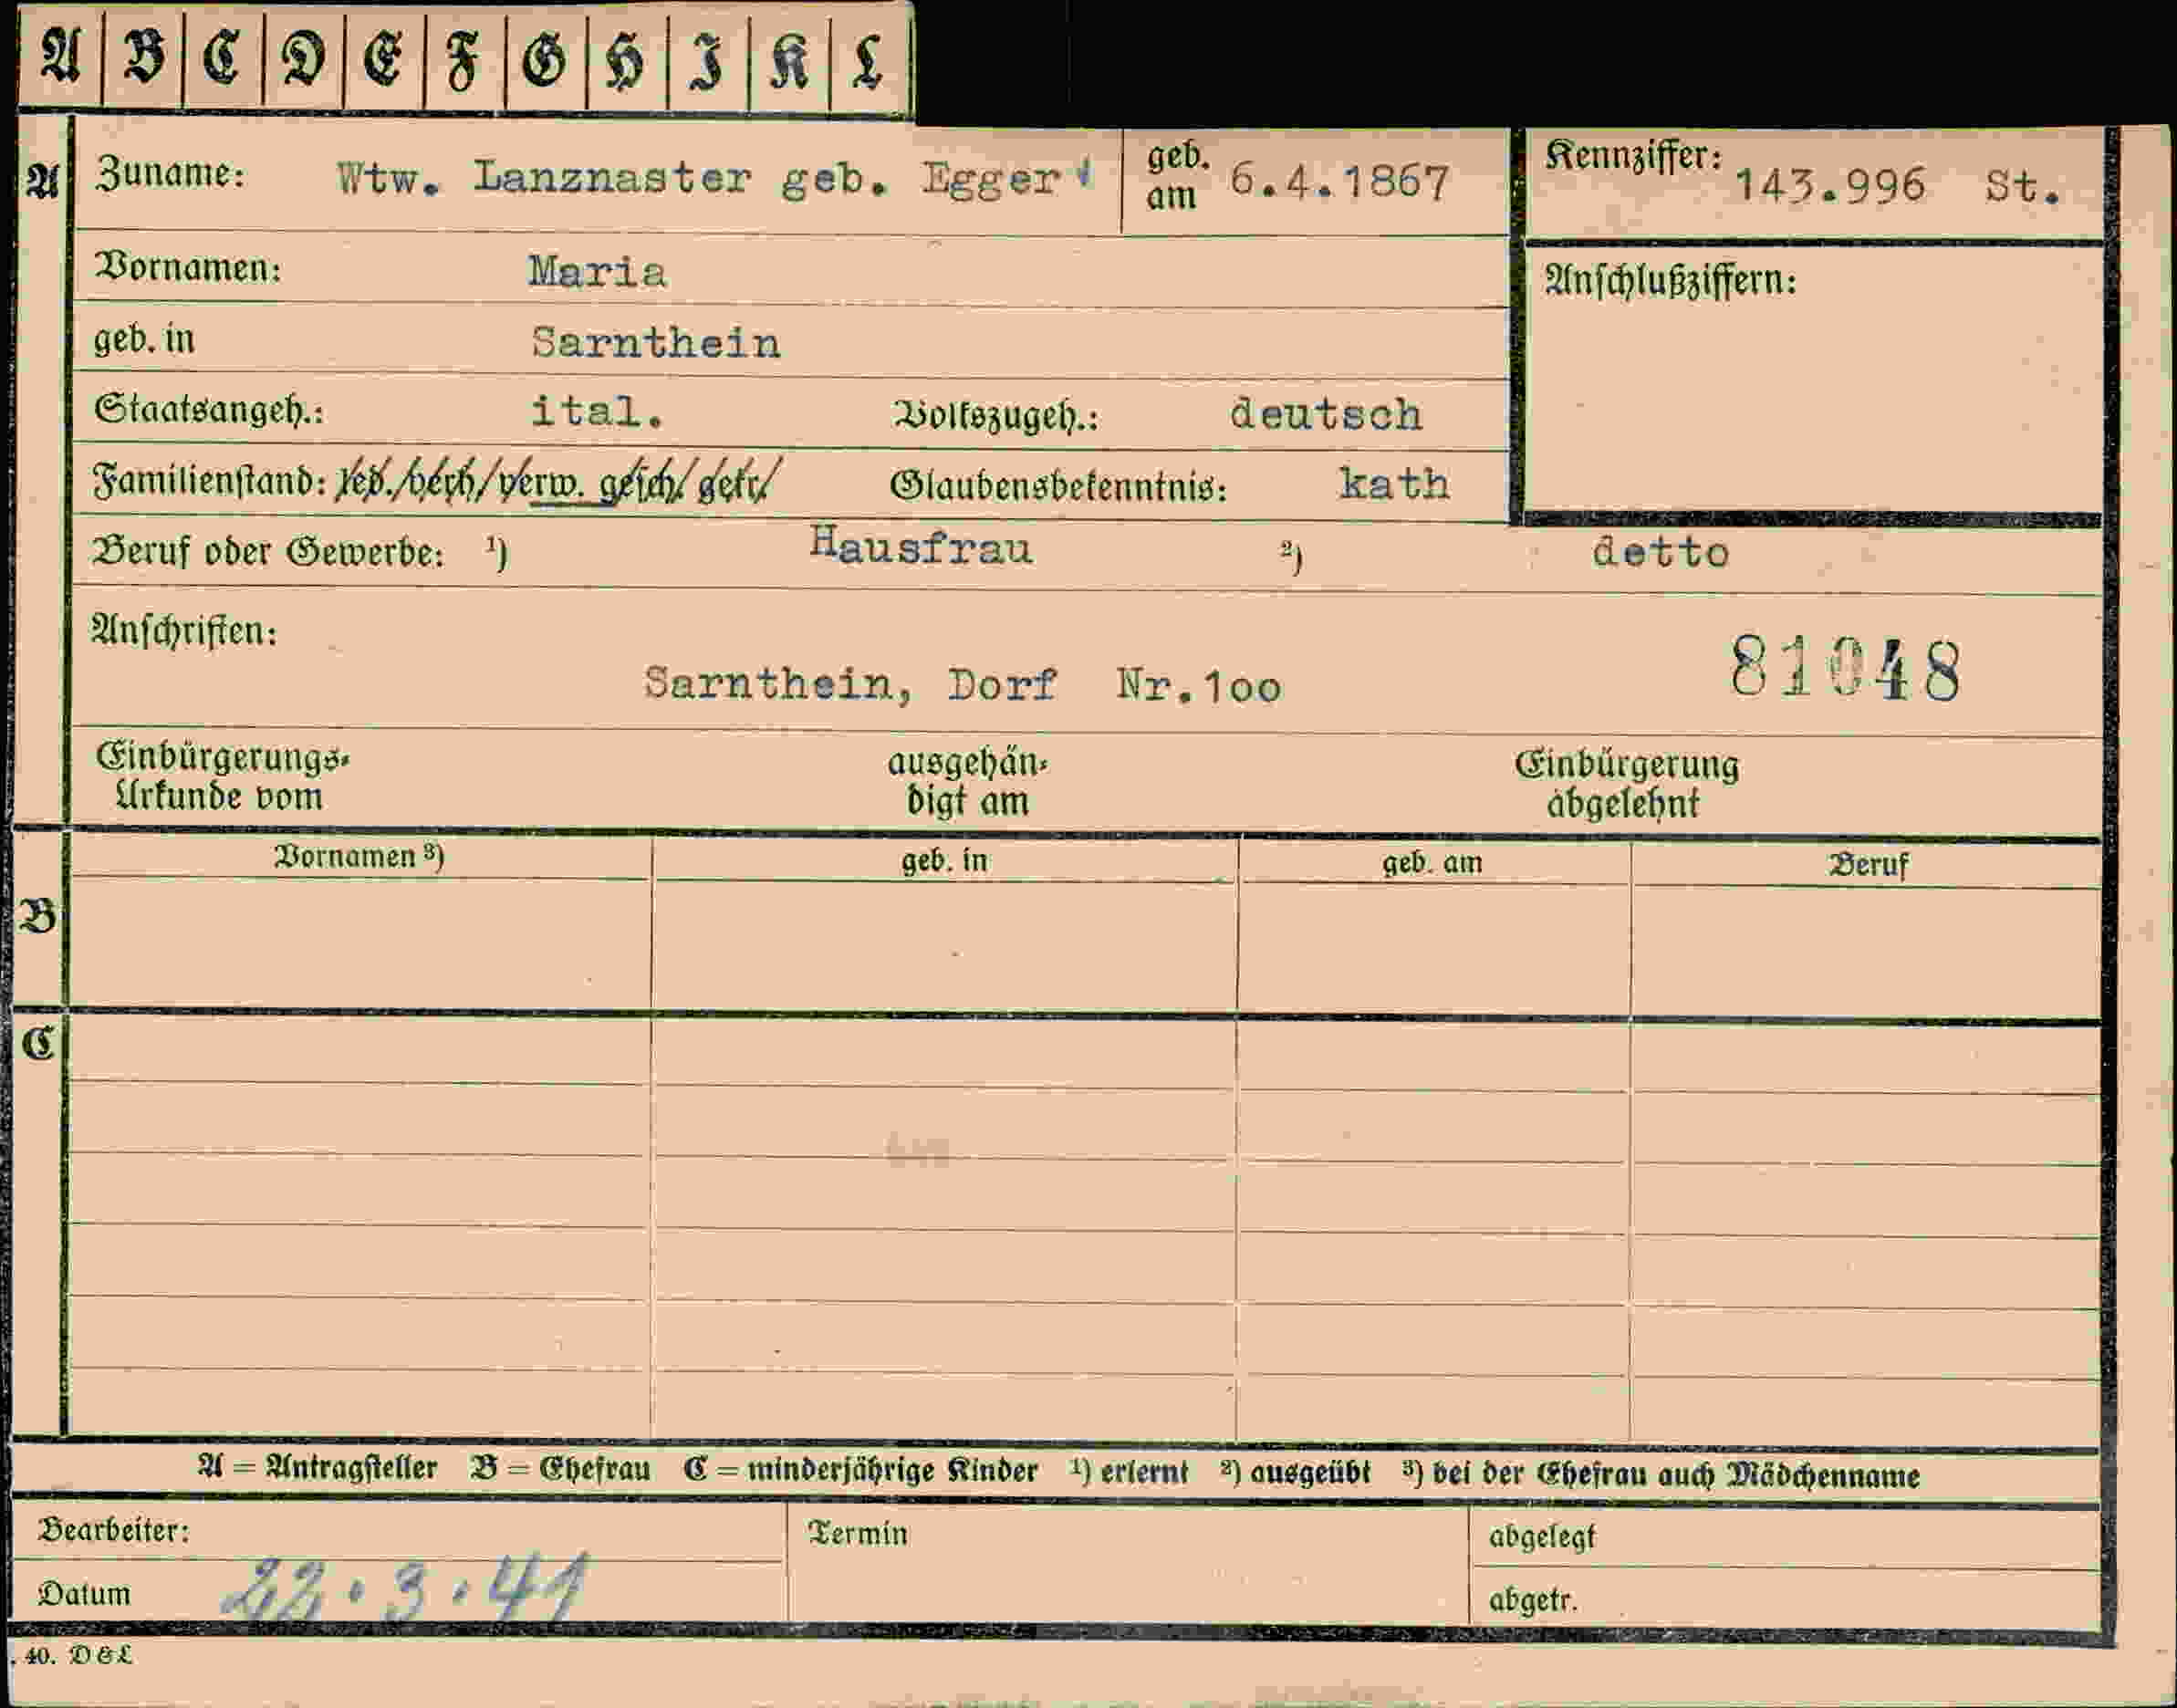 A B C D E F G H I K L
A Zuname: Wtw. Lanznaster geb. Egger geb. am 6.4.1867 Kennziffer: 143.996 St.
Vornamen: Maria Anschlußziffern:
geb. in Sarnthein
Staatsangeh.: ital. Volkszugeh.: deutsch
Familienstand: led./verh/verw. gesch/ getr/ Glaubensbekenntnis: kath
Beruf oder Gewerbe: ¹) Hausfrau ²) detto
Anschriften:
Sarnthein, Dorf Nr.1oo 81048
Einbürgerungs- ausgehän- Einbürgerung
Urkunde vom digt am abgelehnt
Vornamen ³) geb. in geb. am Beruf
B
C
A = Antragsteller B = Ehefrau C = minderjährige Kinder ¹) erlernt ²) ausgeübt ³) bei der Ehefrau auch Mädchenname
Bearbeiter: Termin abgelegt
Datum 22.3.41 abgetr.
. 40. D&L